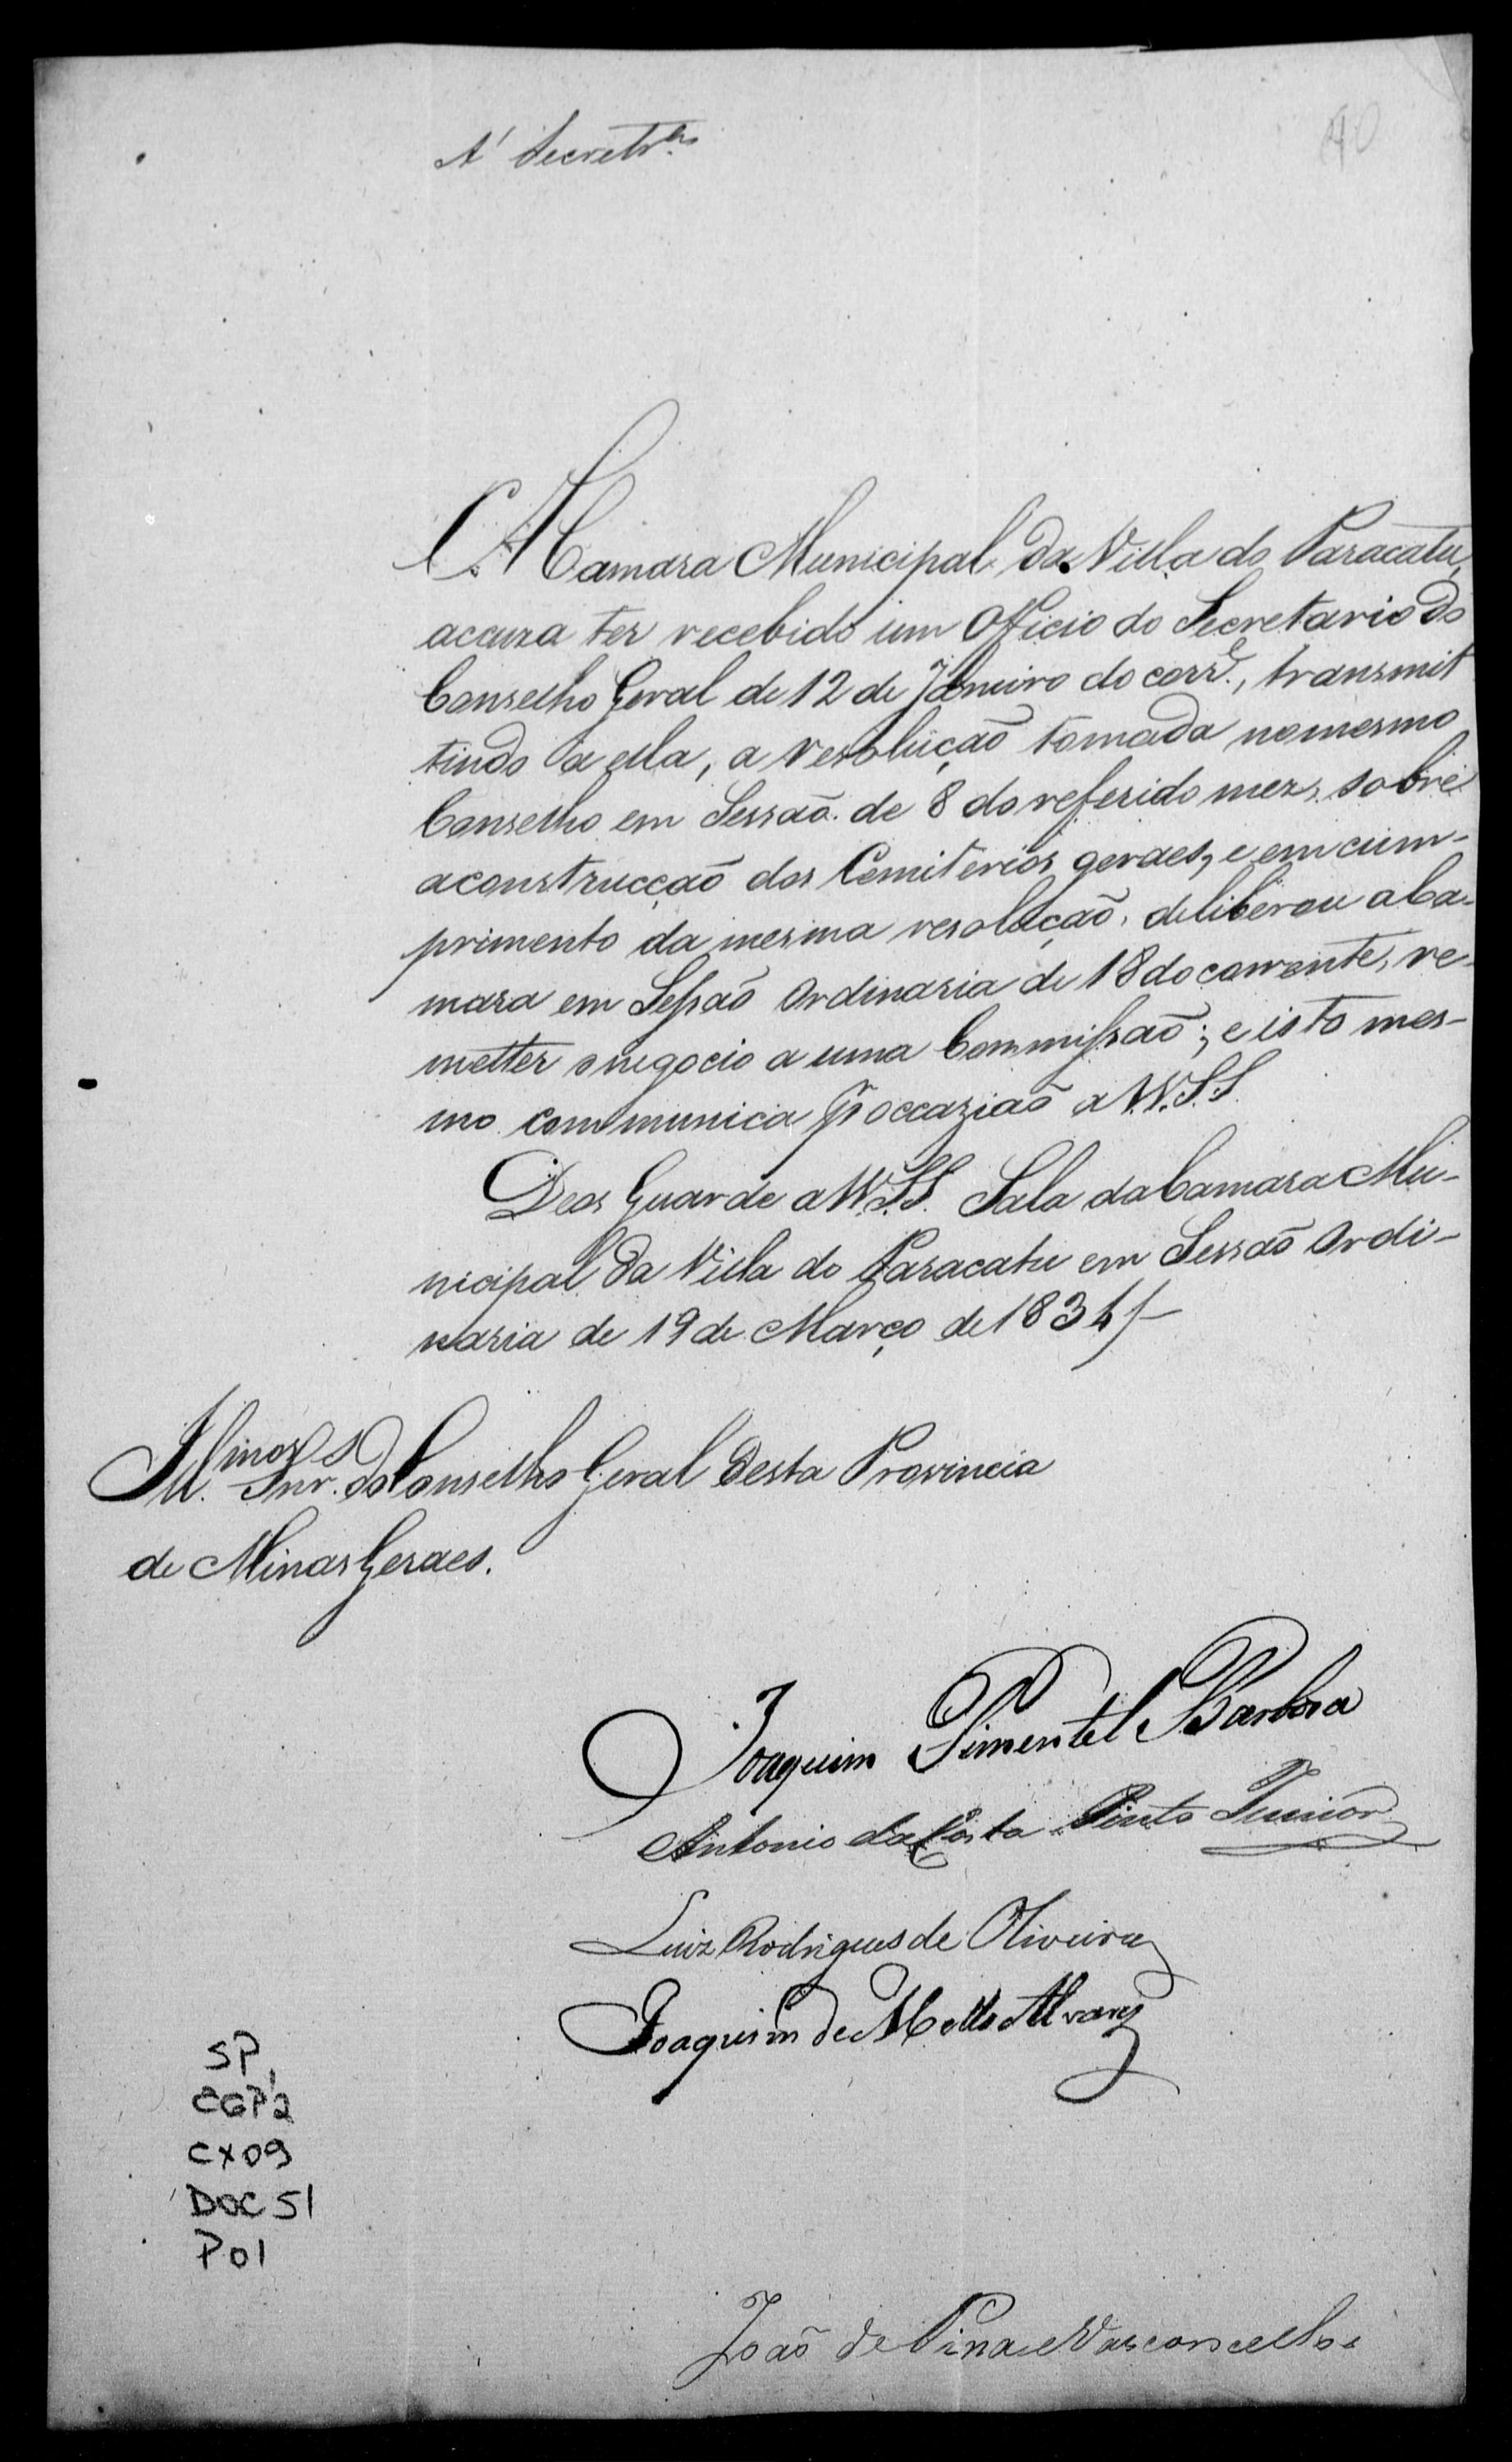 A' Secretrª
40
A Camara Municipal da Villa do Paracatu,
accuza ter recebido um Officio do Secretario do
Conselho Geral de 12 de Janeiro do corrᵉ., transmit
tindo a ella, a resolução tomada no mesmo
Conselho em Sessão de 8 do referido mez, sobre
a construcção dos Cemiterios geraes, e em cum-
primento da mesma resolução, deliberou a Ca-
mara em Sessão Ordinaria de 18 do corrente, re-
metter o negocio a uma Commissão; e isto mes-
mo communica pʳ occazião a V.V.S.S.
Deos Guarde a V.V.S.S. Sala da Camara Mu-
nicipal da Villa do Paracatu em Sessão Ordi-
naria de 19 de Março de 1834
Ill.mos Snr.s do Conselho Geral desta Provincia
de Minas Geraes.
Joaquim Pimentel Barboza
Antonio da Costa Pinto Junior
Luiz Rodrigues de Oliveira
Joaquim de Mello Alvares
SP
CGP2
CX09
DOC 51
P01
João de Pina e Vasconcellos